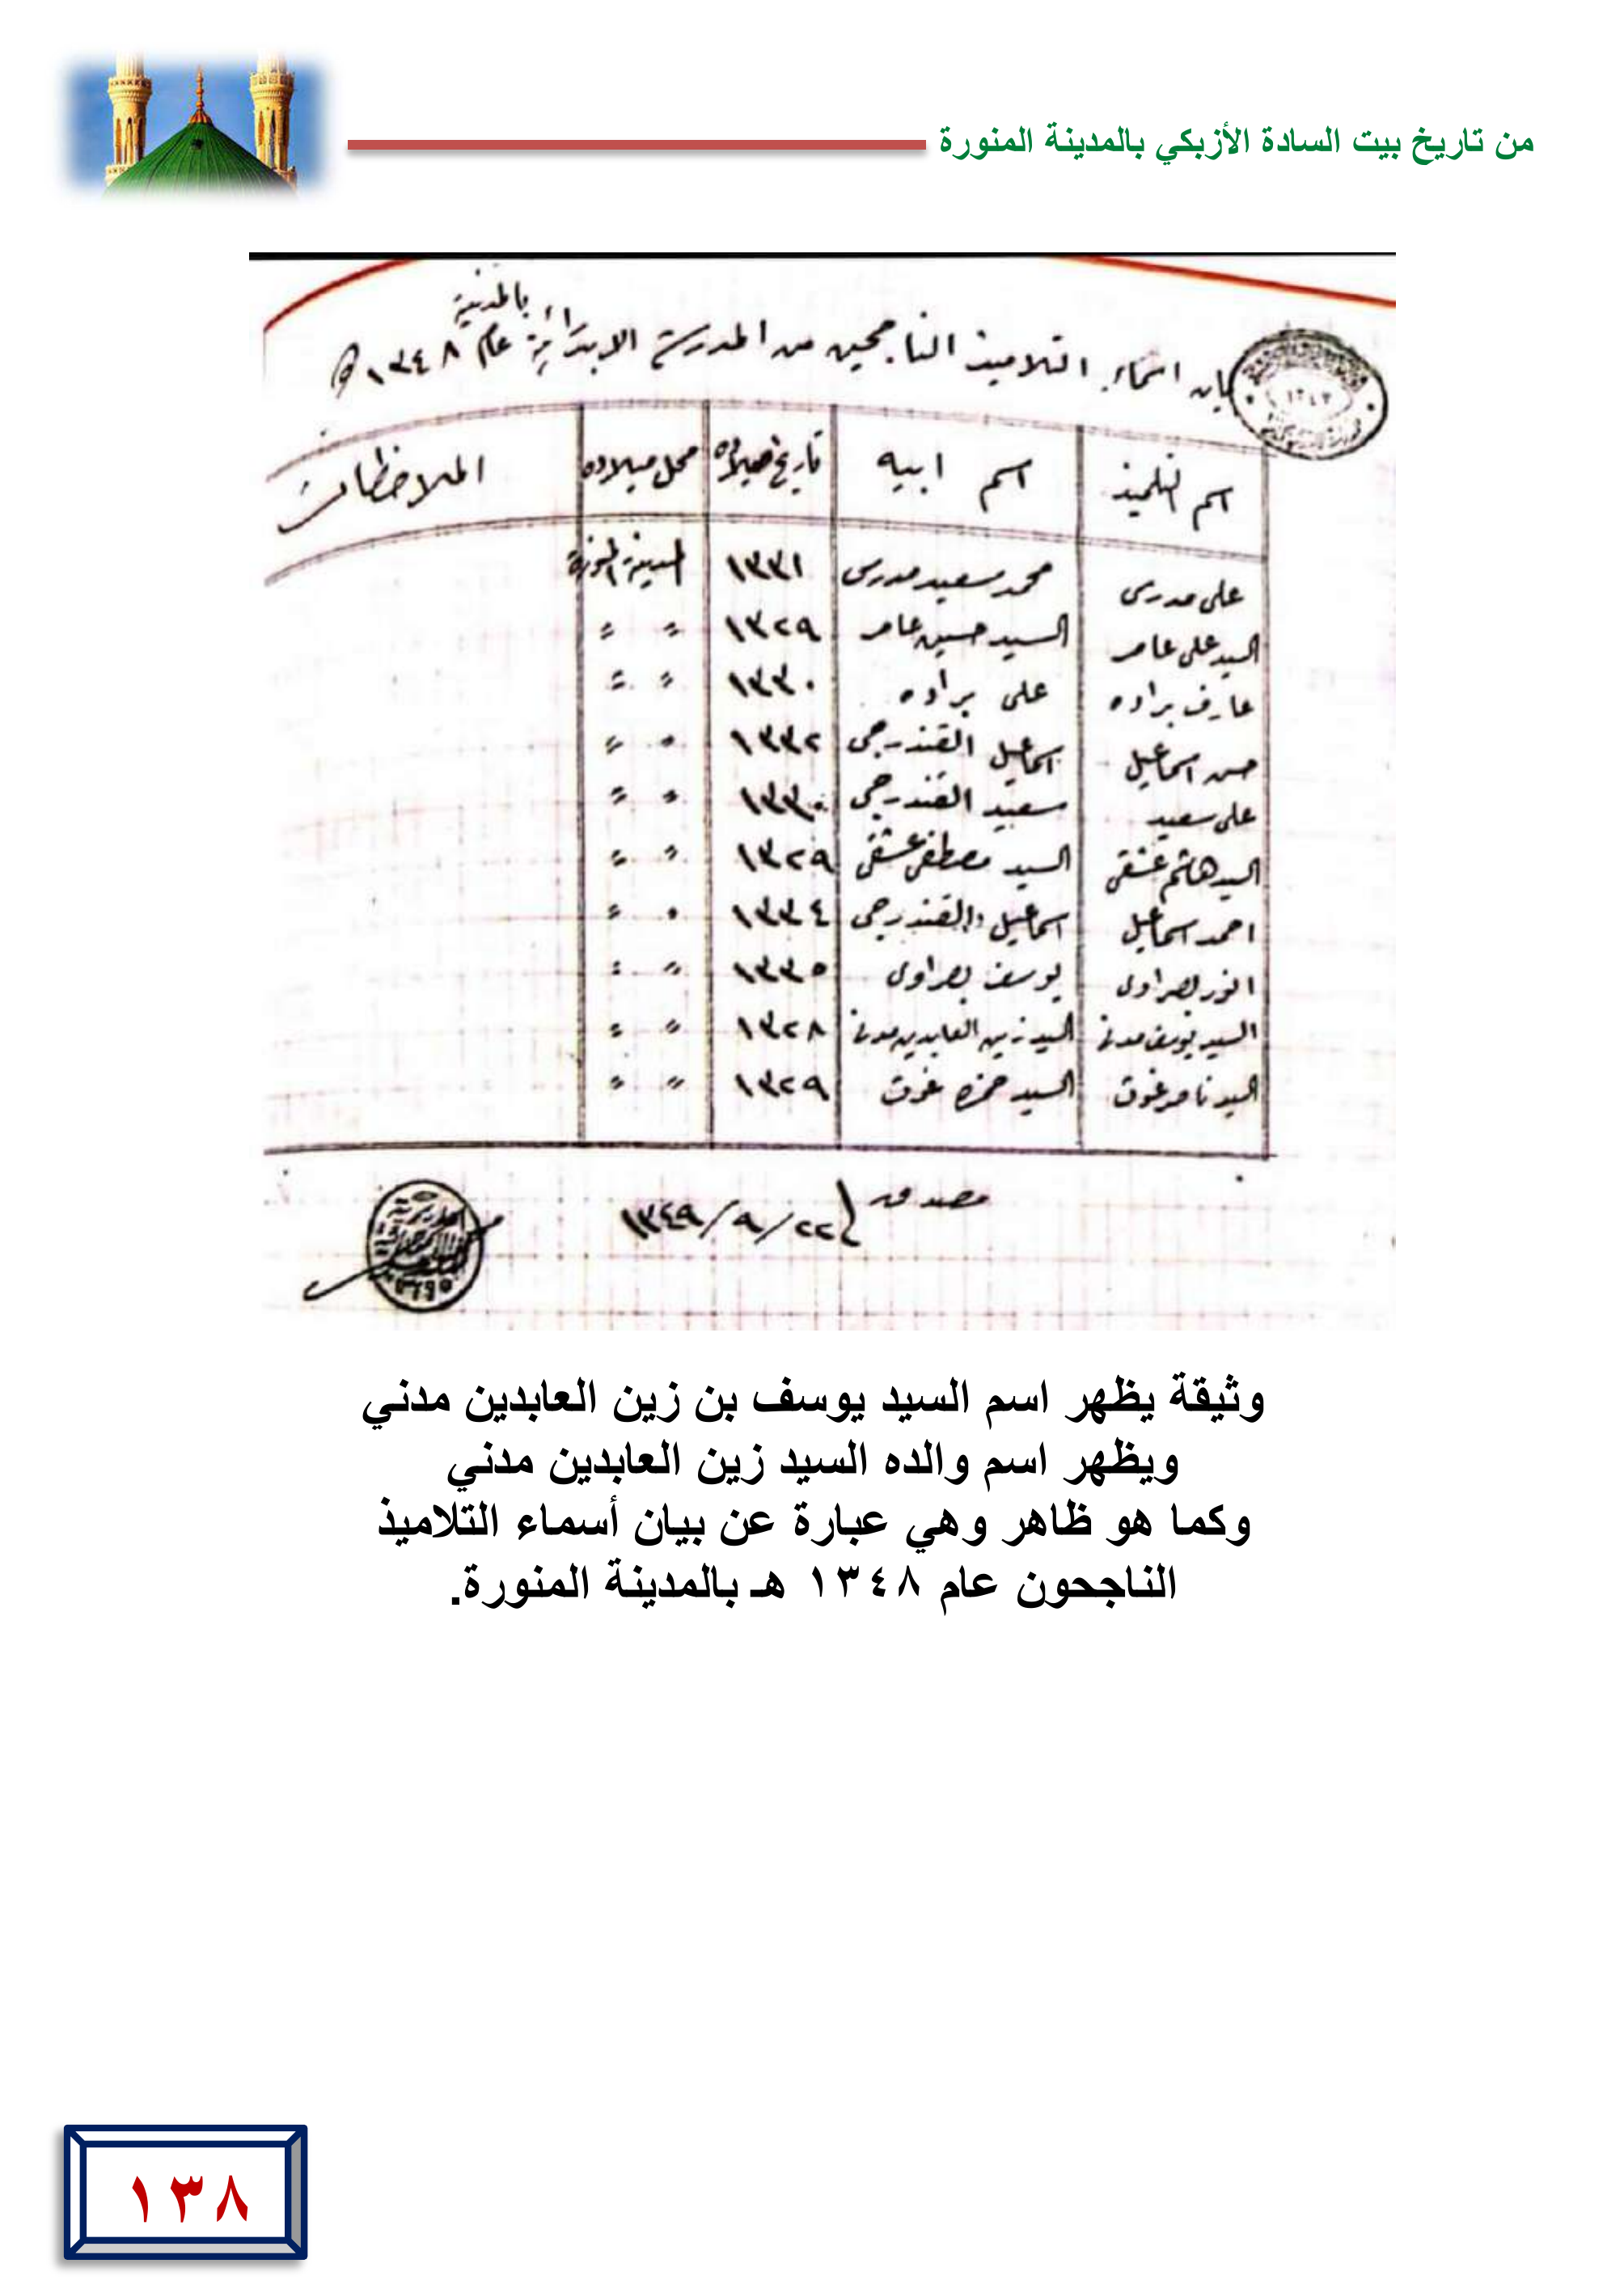 من تاريخ بيت السادة الأزبكي بالمدينة المنورة
بالمدينة
بيان اسماء التلاميذ الناجحين من المدرسة الابتدائية عام ١٣٤٨ ه
١٣٤٣
اسم التلميذ اسم ابيه تاريخ ميلاده محل ميلاده الملاحظات
على مدرس محمد سعيد مدرس ١٣٣١ المدينة المنورة
السيد على عامر السيد حسين عامر ١٣٢٩ " "
عارف براده على براده ١٣٣٠ " "
حسن اسماعيل اسماعيل القندرجى ١٣٣٢ " "
على سعيد سعيد القندرجى ١٣٣٠ " "
السيد هاشم عشقى السيد مصطفى عشقى ١٣٢٩ " "
احمد اسماعيل اسماعيل القندرجى ١٣٣٤ " "
انور بصراوى يوسف بصراوى ١٣٣٥ " "
السيد يوسف مدنى السيد زين العابدين مدنى ١٣٢٨ " "
السيد ناصر غوث السيد حمزه غوث ١٣٢٩ " "
مصدق ٢٢/٩/١٣٤٩
وثيقة يظهر اسم السيد يوسف بن زين العابدين مدني
ويظهر اسم والده السيد زين العابدين مدني
وكما هو ظاهر وهي عبارة عن بيان أسماء التلاميذ
الناجحون عام ١٣٤٨ هـ بالمدينة المنورة.
١٣٨